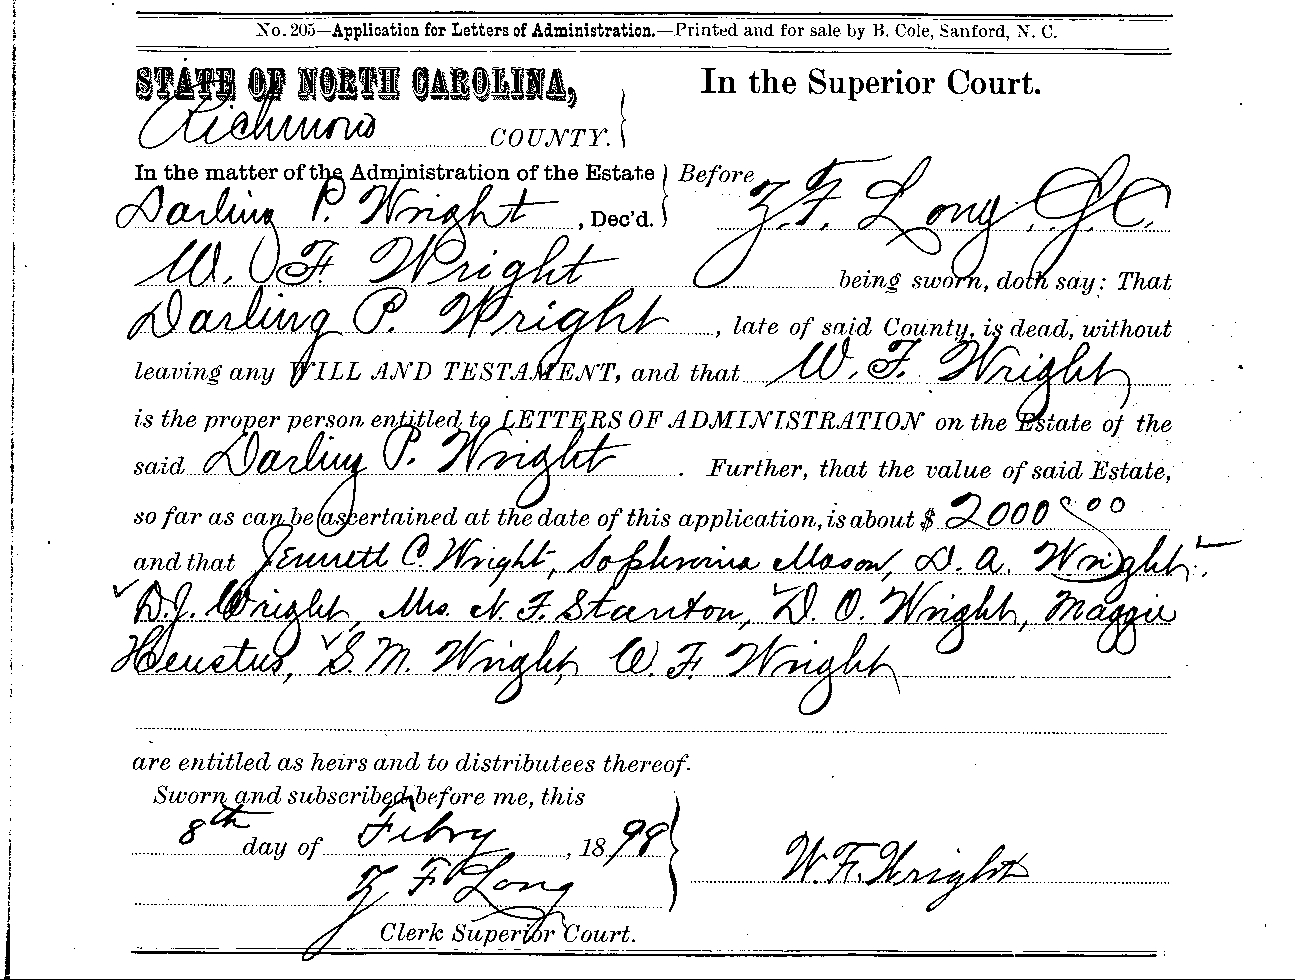 No. 205—Application for Letters of Administration.—Printed and for sale by B. Cole, Sanford, N. C.
STATE OF NORTH CAROLINA,
In the Superior Court.
Richmond COUNTY.
In the matter of the Administration of the Estate
Before
Darling P. Wright, Dec'd.
Z. F. Long, C.S.C.
W. F. Wright being sworn, doth say: That
Darling P. Wright, late of said County, is dead, without
leaving any WILL AND TESTAMENT, and that W. F. Wright
is the proper person entitled to LETTERS OF ADMINISTRATION on the Estate of the
said Darling P. Wright. Further, that the value of said Estate,
so far as can be ascertained at the date of this application, is about $ 2000 00
and that C. Wright, Sophronia Mason, D. A. Wright,
D. J. Wright, Mrs. N. F. Stanton, D. O. Wright, Maggie
Heustus, S. M. Wright, W. F. Wright
are entitled as heirs and to distributees thereof.
Sworn and subscribed before me, this
8th day of Febry, 1898
W. F. Wright
Z F Long
Clerk Superior Court.